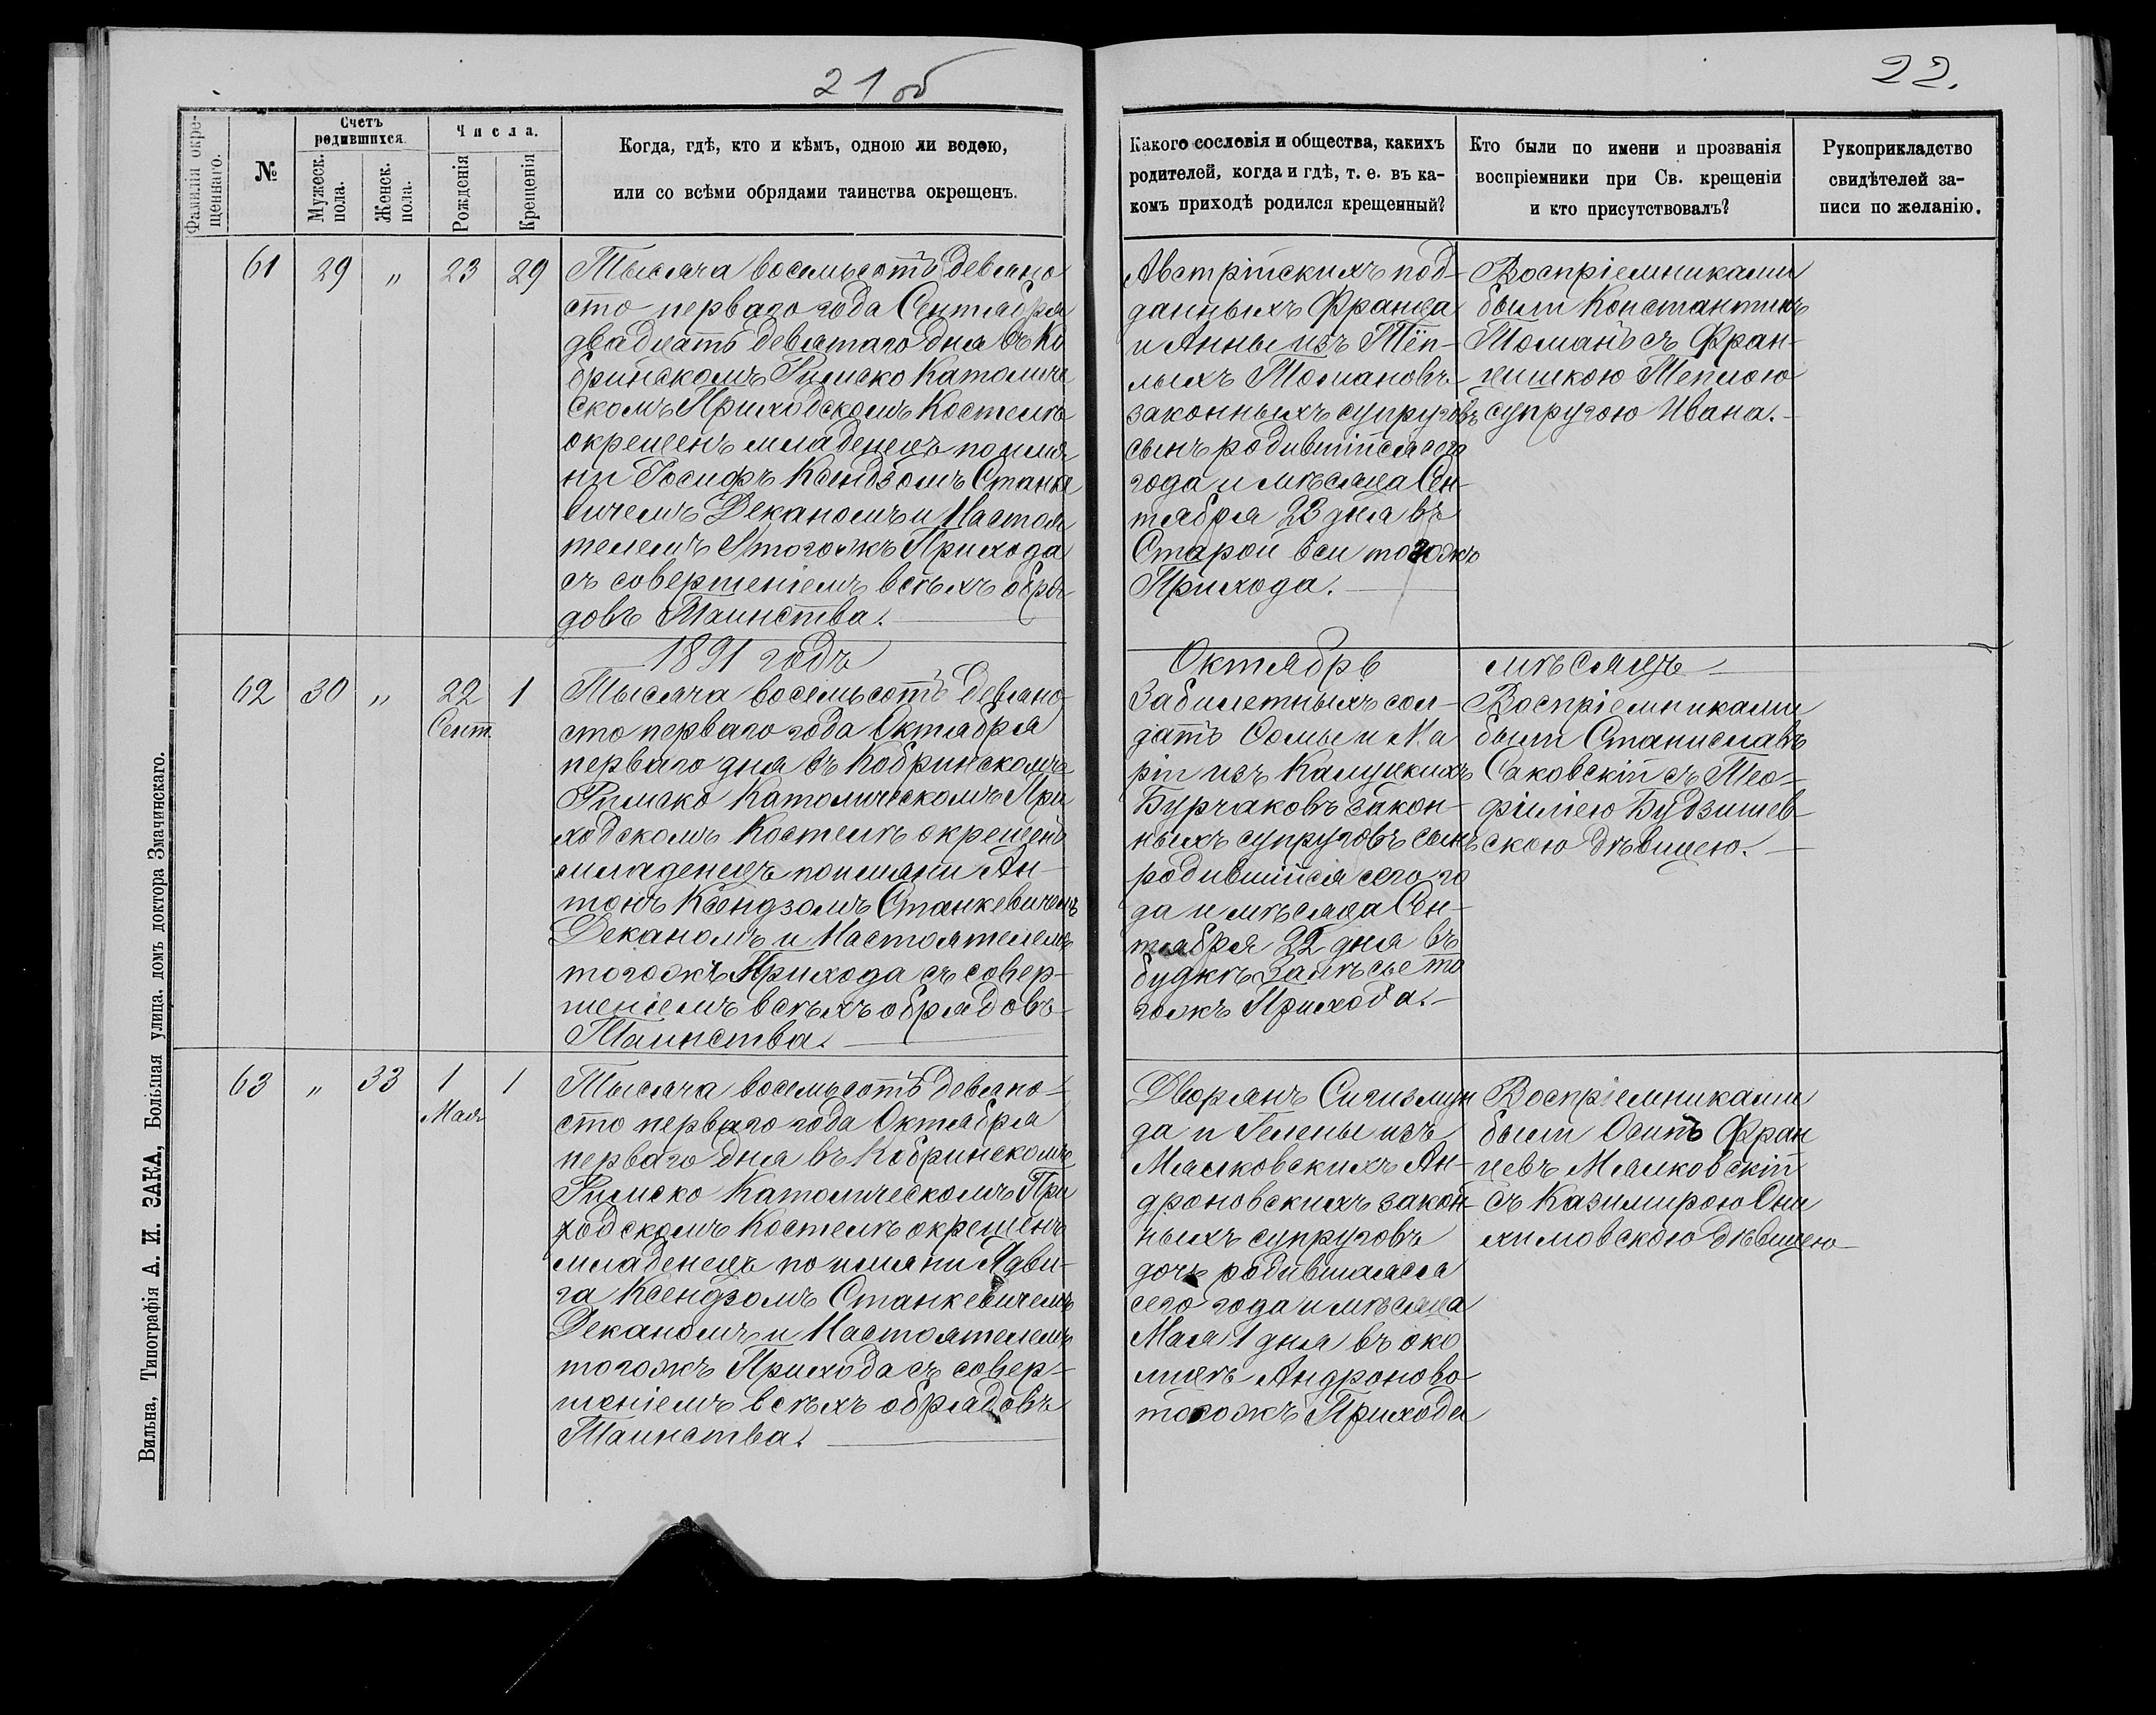 21 об
22.
Фамилія окре-
щеннаго.
№
Счетъ
родившихся.
Мужеск.
пола.
Женск.
пола.
Числа.
Рожденія
Крещенія
Когда, гдѣ, кто и кѣмъ, одною ли водою,
или со всѣми обрядами таинства окрещенъ.
Какого сословія и общества, какихъ
родителей, когда и гдѣ, т. е. въ ка-
комъ приходѣ родился крещенный?
Кто были по имени и прозванія
воспріемники при Св. крещеніи
и кто присутствовалъ?
Рукоприкладство
свидѣтелей за-
писи по желанію.
61 29 " 23 29
Тысяча восемьсотъ девяно
сто перваго года Сентября
двадцать девятаго дня въ Ко
бринскомъ Римско Католиче
скомъ Приходскомъ Костелѣ
окрещенъ младенецъ по имя
ни Іосифъ Ксендзомъ Станке
вичемъ Деканомъ и Настоя
телемъ тогожъ Прихода
съ совершеніемъ всѣхъ обря
довъ Таинства.
Австрійскихъ под-
данныхъ Франца
и Анны изъ Тёп-
лыхъ Томановъ
законныхъ супруговъ
сынъ родившійся сего
года и мѣсяца Сен-
тября 23 дня въ
Старой вси тогожъ
Прихода.
Воспріемниками
были Константинъ
Томанъ съ Фран-
цишкою Теплою
супругою Ивана.
1891 годъ
Октябрь мѣсяцъ
62 30 " 22 1
Сент.
Тысяча восемьсотъ девяно-
сто перваго года Октября
перваго дня въ Кобринскомъ
Римско Католическомъ При
ходскомъ Костелѣ окрещенъ
младенецъ по имяни Ан-
тонъ Ксендзомъ Станкевичемъ
Деканомъ и Настоятелемъ
тогожъ Прихода съ совер-
шеніемъ всѣхъ обрядовъ
Таинства.
Забилетныхъ сол-
датъ Ѳомы и Ма
ріи изъ Калуцкихъ
Бурчаковъ закон-
ныхъ супруговъ сынъ
родившійся сего го
да и мѣсяца Сен-
тября 22 дня въ
будкѣ Залѣсье то
гожъ Прихода.
Воспріемниками
были Станиславъ
Саковскій съ Тео-
філіею Будзишев-
скою дѣвицею.
63 " 33 1 1
Мая
Тысяча восемьсотъ девяно-
сто перваго года Октября
перваго дня въ Кобринскомъ
Римско Католическомъ При
ходскомъ Костелѣ окрещенъ
младенецъ по имяни Ядви-
га Ксендзомъ Станкевичемъ
Деканомъ и Настоятелемъ
тогожъ Прихода съ совер-
шеніемъ всѣхъ обрядовъ
Таинства.
Дворянъ Сигизмун
да и Гелены изъ
Малковскихъ Ан-
дроновскихъ закон-
ныхъ супруговъ
дочь родившаяся
сего года и мѣсяца
Мая 1 дня въ око
лицѣ Андроново
тогожъ Прихода
Воспріемниками
были Осипъ Фран
цевъ Малковскій
съ Казимирою Они
химовскою дѣвицею
Вильна, Типографія А. И. ЗАКА, Большая улица, домъ доктора Змачинскаго.